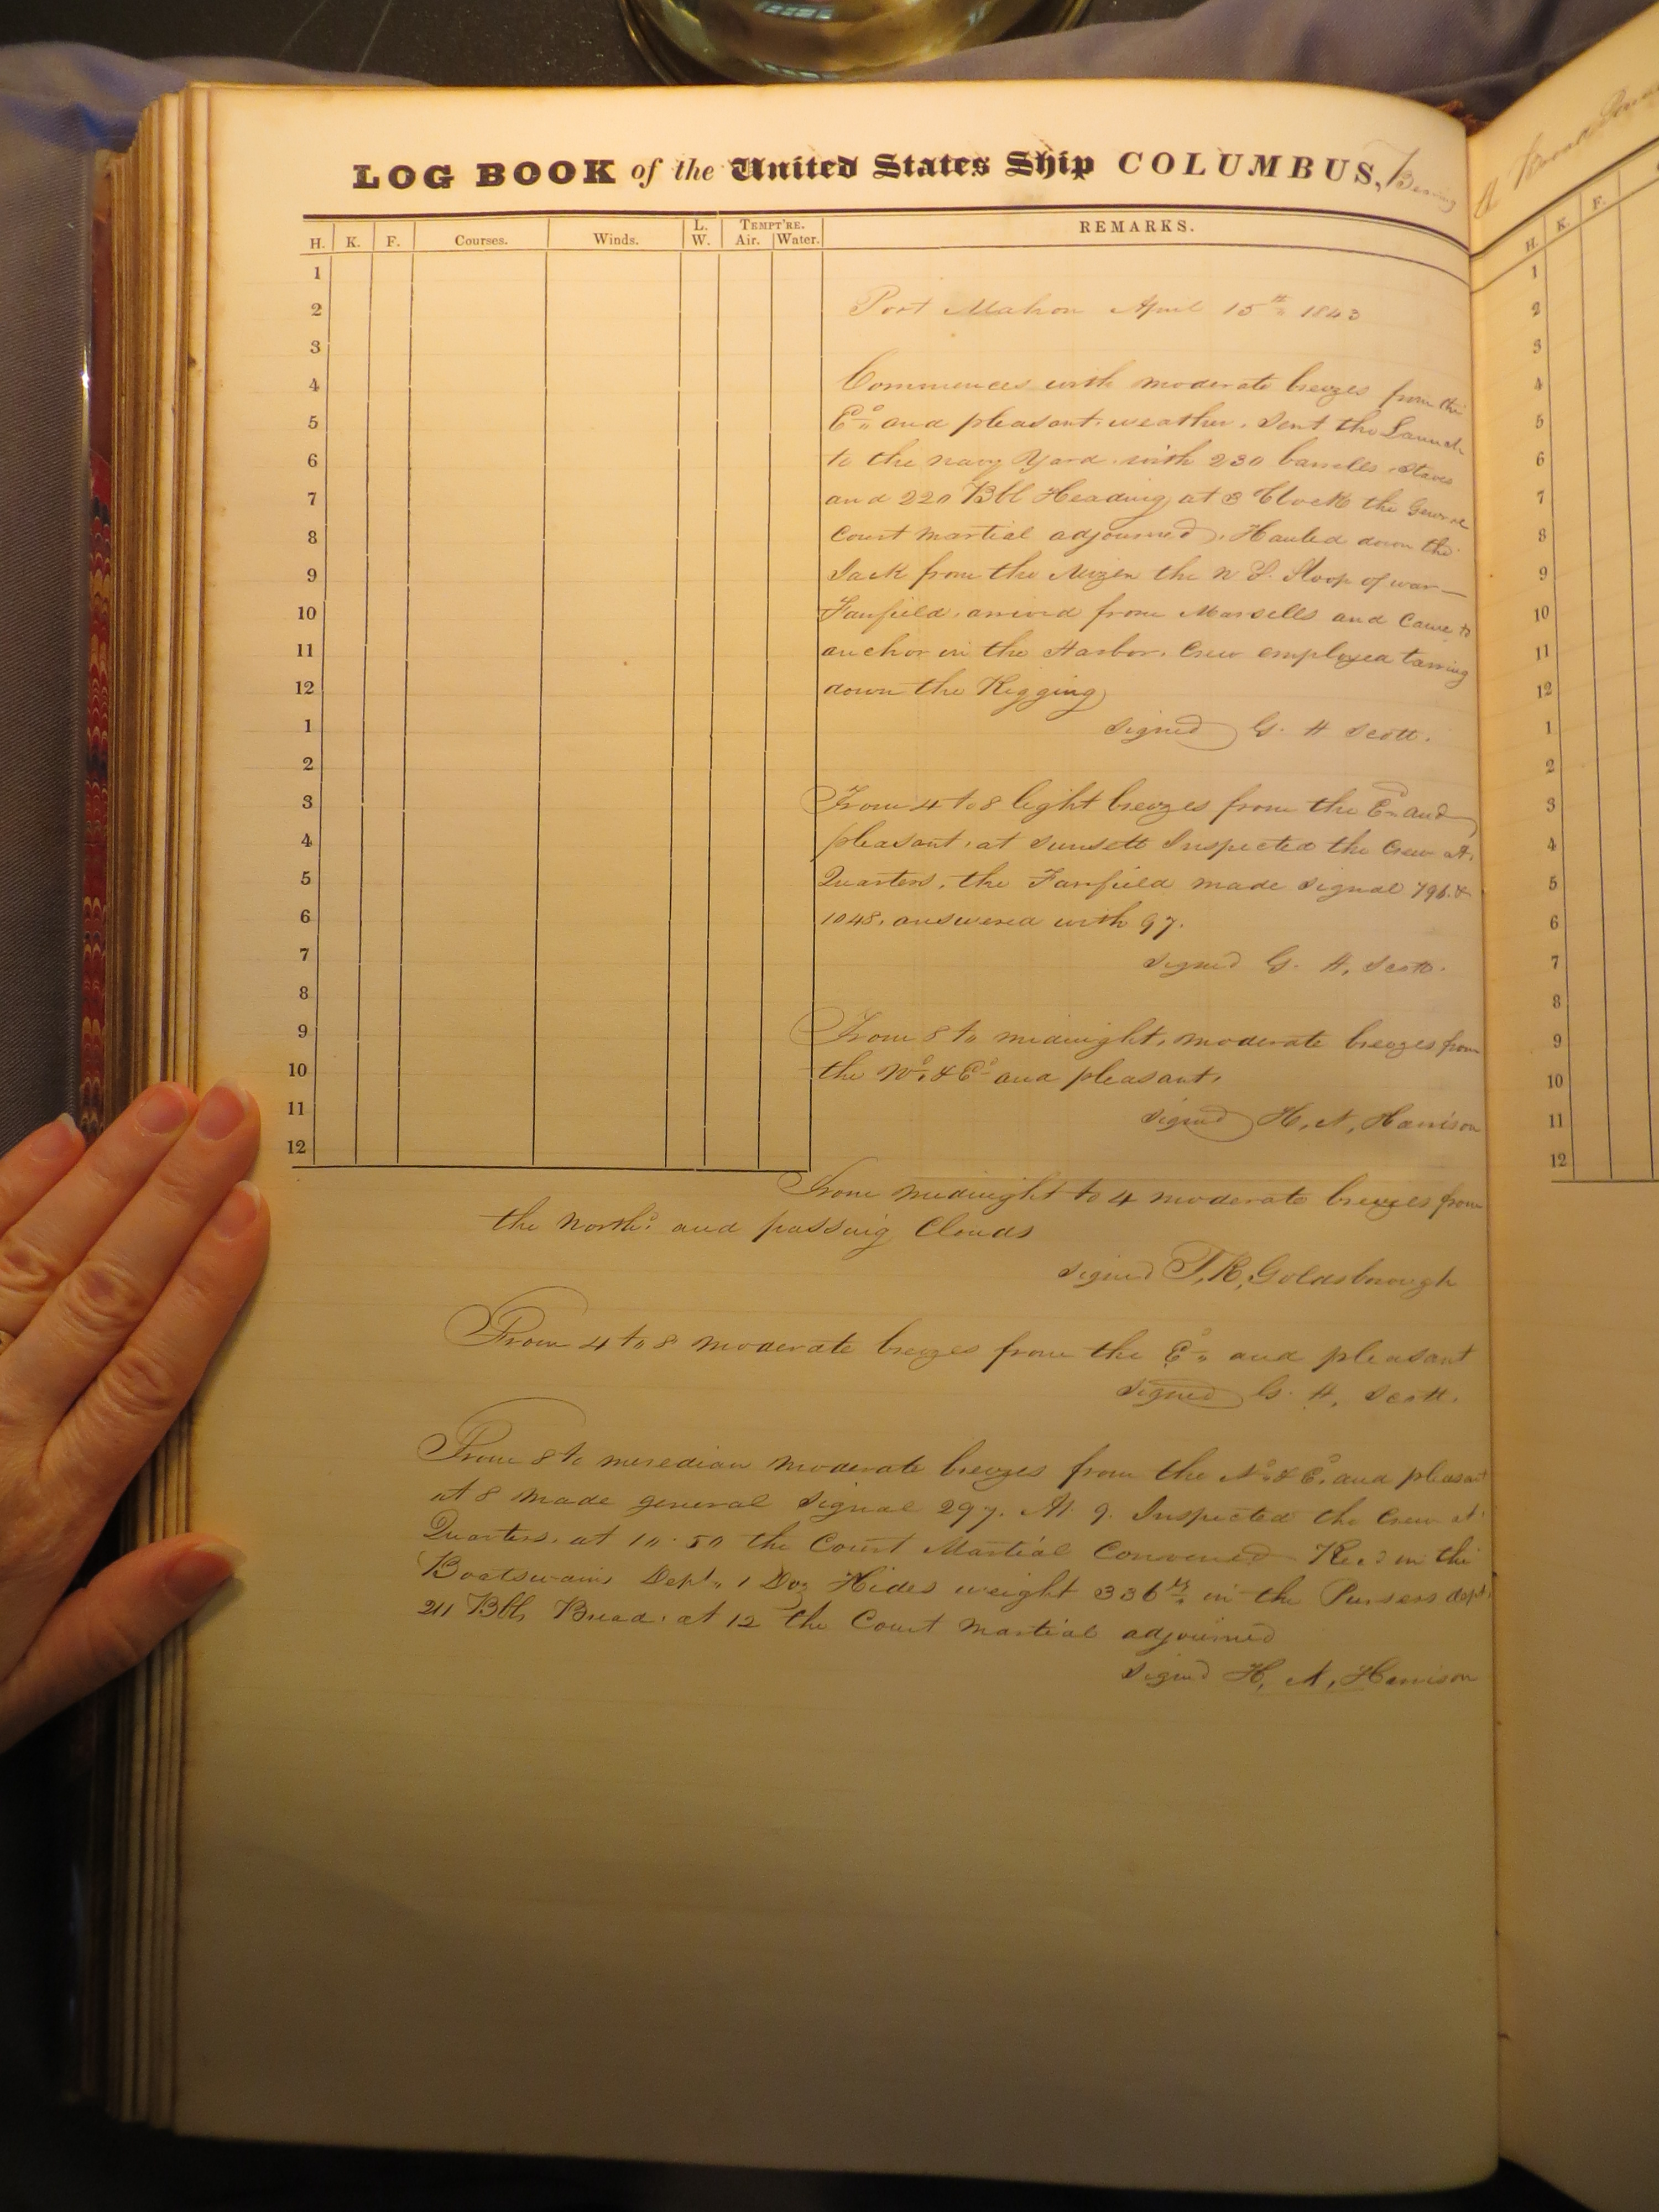 LOG BOOK of the United States Ship COLUMBUS, Bearing
H. K. F. Courses. Winds. L. W. TEMPT'RE. Air. Water. REMARKS.
1
2 Port Mahon April 15th 1843
3
4 Commences with moderate breezes from the
5 Ed and pleasant weather. Sent the Launch
6 to the navy Yard with 230 barrells Staves
7 and 220 Bbl Heading at 3 Clock the General
8 Court martial adjourned. Hauled down the
9 Jack from the Mizen the U S. Sloop of war
10 Fairfield arrived from Marsells and Came to
11 anchor in the Harbor. Crew employed tarring
12 down the Rigging
1 signed G. H Scott.
2
3 From 4 to 8 light breezes from the Ed and
4 pleasant, at sunsett Inspected the Crew at
5 Quarters, the Fairfield made signal 796. &
6 1048. answered with 97.
7 signed G. H. Scott.
8
9 From 8 to midnight, moderate breezes from
10 the Nd & Ed and pleasant,
11 signed H, N, Harrison
12
From midnight to 4 moderate breezes from
the Northd and passing Clouds
signed J, R, Goldsborough
From 4 to 8 moderate breezes from the Ed and pleasant
signed G. H, Scott.
From 8 to meredian moderate breezes from the Nd & Ed and pleasant
at 8 made general signal 297. At 9. Inspected the Crew at
Quarters. at 10.50 the Court Martial Convened Recd in the
Boatswains Dept, 1 Doz Hides weight 336 lbs in the Pursers dept
211 Bbls Bread. at 12 the Court Martial adjourned
signed H, N, Harrison
H. K. F.
1
2
3
4
5
6
7
8
9
10
11
12
1
2
3
4
5
6
7
8
9
10
11
12